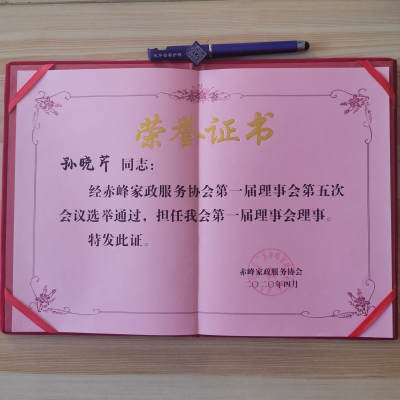 荣誉证书
孙晓芹 同志：
经赤峰家政服务协会第一届理事会第五次
会议选举通过，担任我会第一届理事会理事。
特发此证。
赤峰家政服务协会
二〇二〇年四月